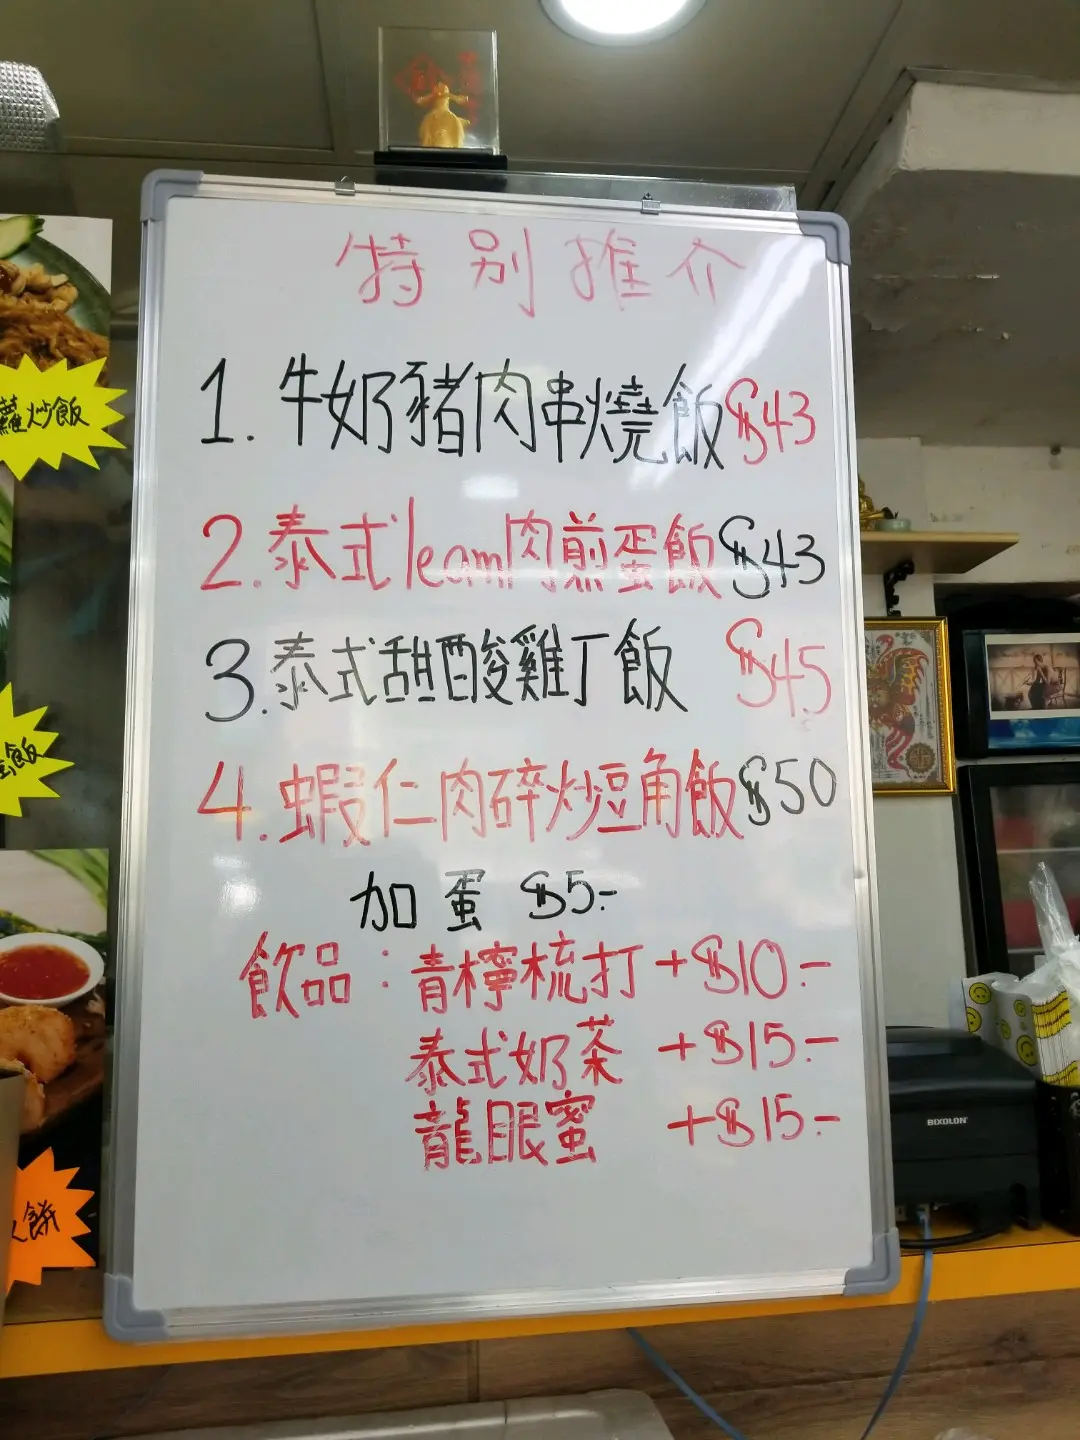 特別推介
1. 牛奶豬肉串燒飯 $43
2. 泰式leam肉煎蛋飯 $43
3. 泰式甜酸雞丁飯 $45
4. 蝦仁肉碎炒豆角飯 $50
加蛋 $5.-
飲品：青檸梳打 +$10.-
泰式奶茶 +$15.-
龍眼蜜 +$15.-
蘿炒飯
飯
餅
BIXOLON